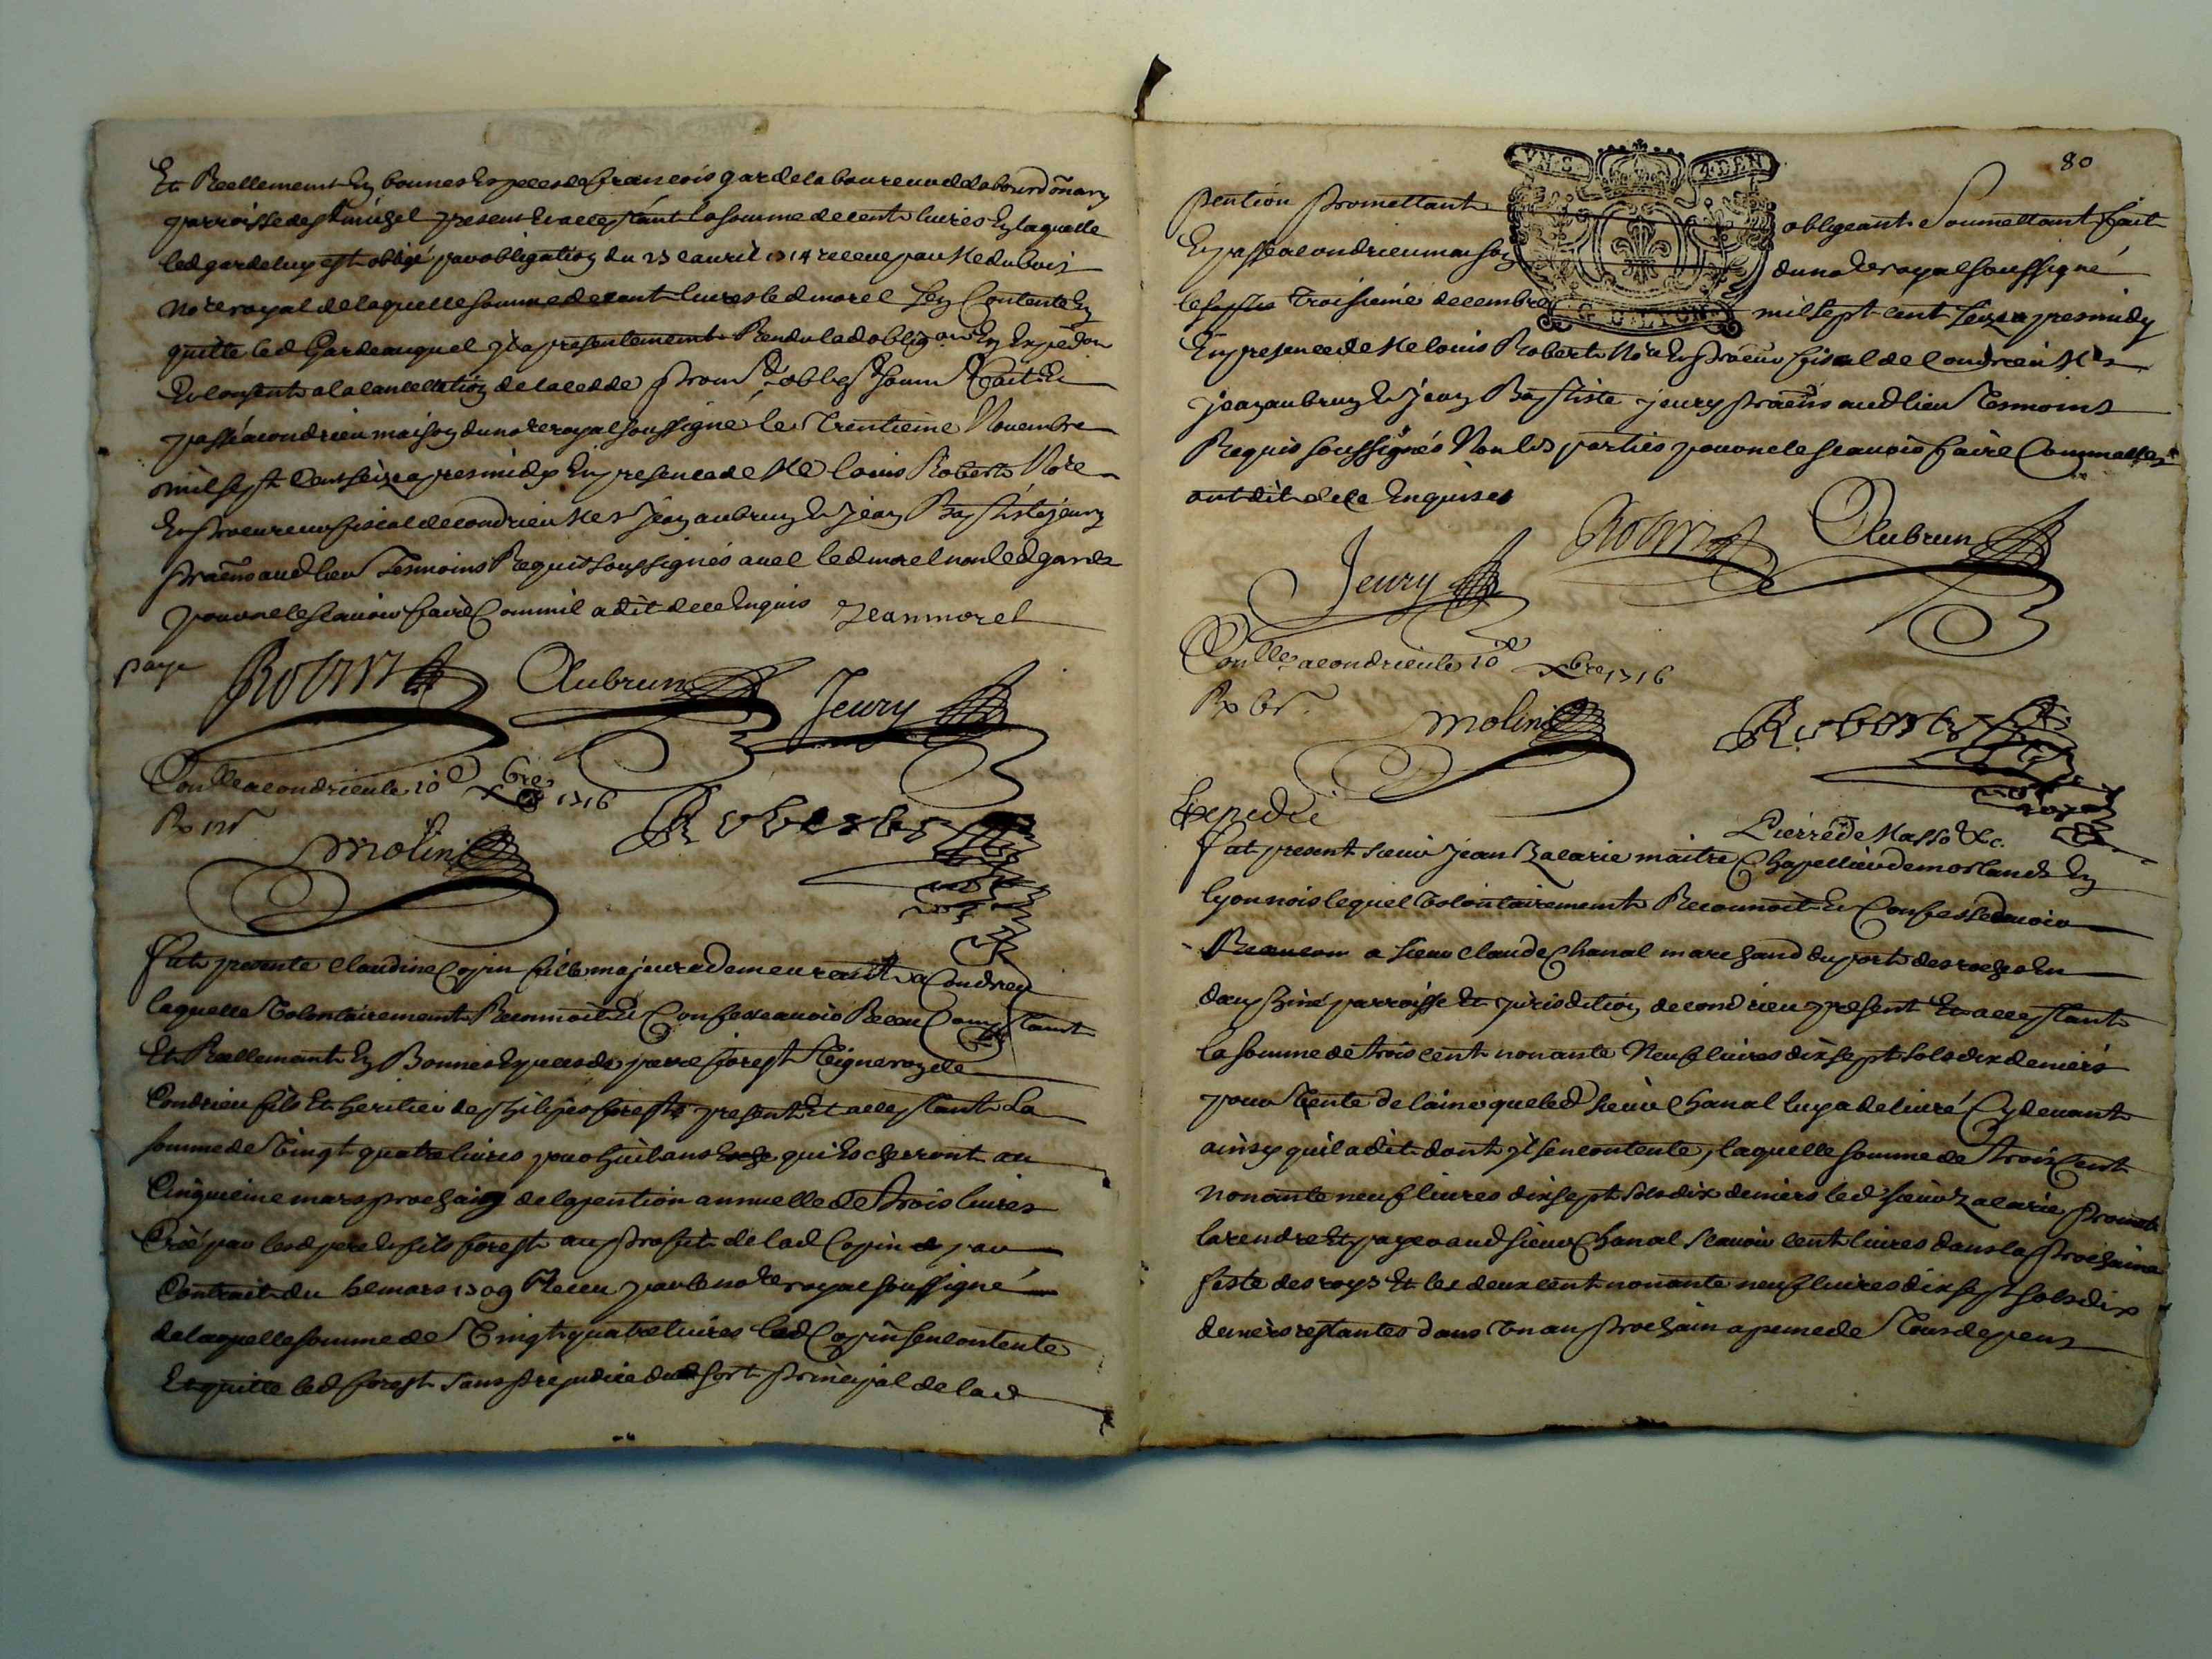 Et Reellement En bonnes Especes de francois garde laboureur de la bourdonary
parroisse de st michel present et acceptant la somme de cent livres En laquelle
led garde luy est obligé par obligation du 23e avril 1714 receue par Me dubois
no re royal de laquelle somme de cent livres led morel sen Contente Et
quitte led Garde auquel il a presentement Rendu lad oblig on En Expedon
Et consent a la cancellation de la cedde prom t oblig t soum t fait Et
passé a condrieu maison du no re royal soussigné le Trentieme Novembre
mil sept Cent seize apres midy En presence de Me louis Robert No re
Et procureur fiscal de condrieu Mes Jean aubrun Et Jean Baptiste jeury
pratens aud lieu Tesmoins Requis soussignés avec led morel non led garde
pour ne le scavoir faire Comme il a dit de ce Enquis Jean morel
paye
Robert Aubrun Jeury
Con lle a condrieu le 10e xbre 1716
Rx 12s
Molin Roberts
fut presente Claudine Copin fille majeure demeurant a Condrieu
laquelle Volontairement Reconnoit Et Confesse avoir Receu Comptant
Et Reellemant En Bonnes Especes de pierre forest Vigneron de
Condrieu fils Et heritier de philipes forest present Et acceptant La
somme de Vingt quatre livres pour huit ans qui Escherront au
Cinquieme mars prochain de la pention annuelle de trois livres
Créé par lesd pere Et fils forest au profit de lad Copin par
Contrait du 5e mars 1709 Receu par le no re royal soussigné
de laquelle somme de Vingt quatre livres lad Copin sen contente
Et quitte led forest sans prejudice du sort principal de lad
80
VN.S. 4.DEN
G. D. LYON
pention promettant obligeant Soumettant fait
Et passé a condrieu maison du no re royal soussigné
le Troisieme decembre mil sept cent seize apres midy
En presence de Me louis Robert No re Et procur fiscal de Condrieu Mes
jean aubrun Et Jean Baptiste jeury pratens aud lieu Tesmoins
Requis soussignés Non les parties pour ne le scavoir faire Comme elles
ont dit de ce Enquises
Jeury Robert Aubrun
Con lle a condrieu le 10e xbre 1716
Rx 6s
Molin Roberts
Expedié
Pierre de Masso &c.
fut present sieur Jean Zacarie maitre Chapellier de mornand En
lyonnois lequel Volontairement Reconnoit Et Confesse devoir
a sieur Claude Chanal marchand du port des roches En
dauphiné parroisse Et jurisdition de condrieu present Et acceptant
la somme de trois cent nonante Neuf livres dix sept sols dix deniers
pour Vente de laine que led sieur Chanal luy a delivré Cy devant
ainsy quil a dit dont il sen contente, laquelle somme de trois Cent
nonante neuf livres dix sept sols dix deniers led sieur Zacarie promet
la rendre Et payer aud sieur Chanal scavoir cent livres dans la prochaine
feste des roys Et les deux cent nonante neuf livres dix sept sols dix
deniers restantes dans Un an prochain a peine de Tous depens